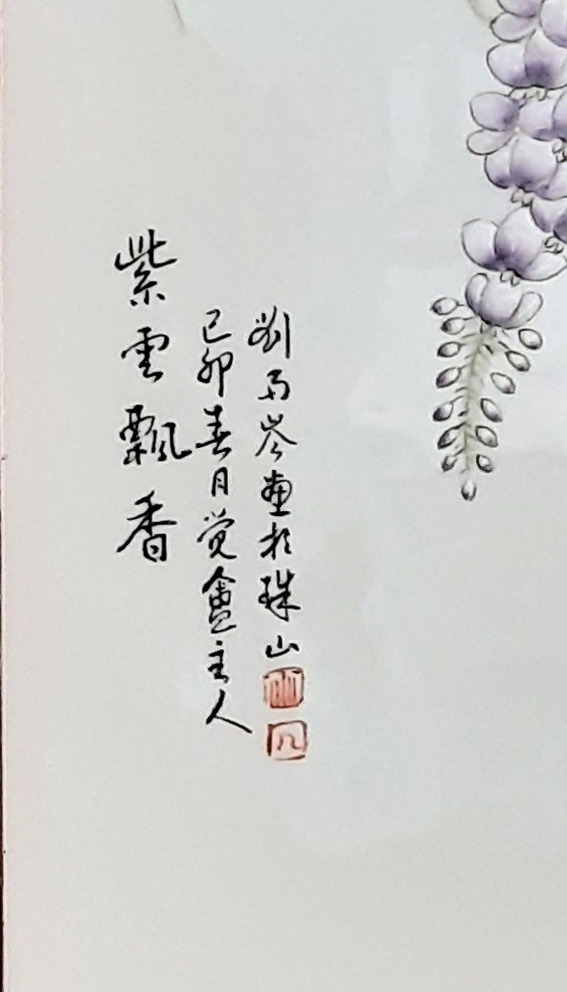 紫雲飄香
己卯春月觉盦主人
劉雨岑畫於珠山